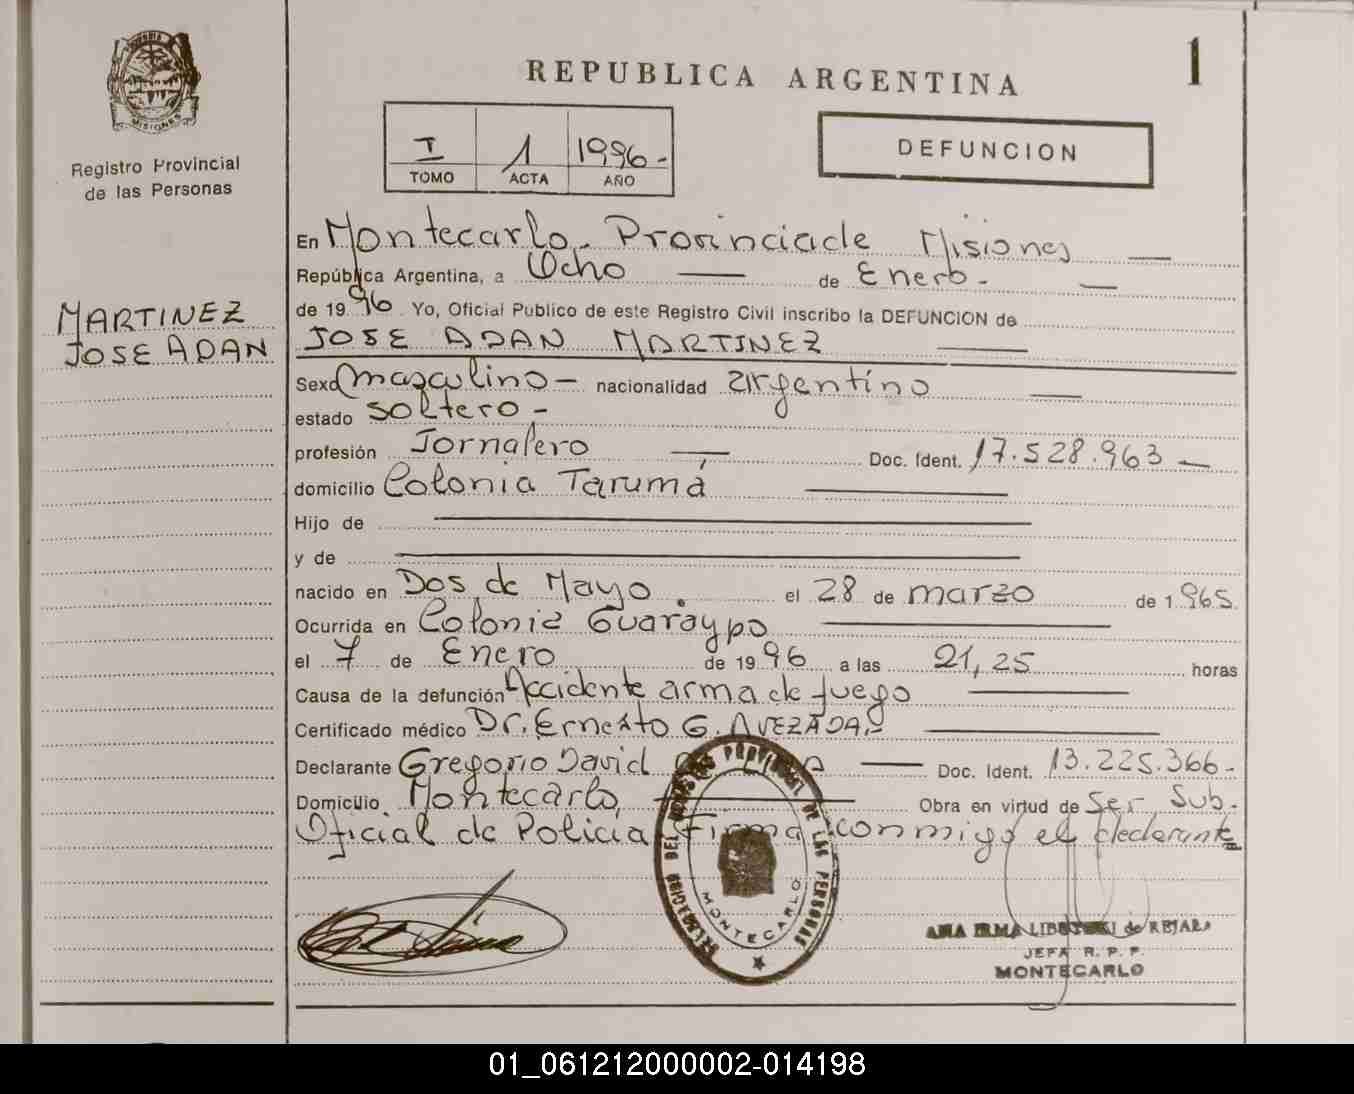 REPUBLICA ARGENTINA
1
PROVINCIA
MISIONES
Registro Provincial
de las Personas
I 1 1996-
TOMO ACTA AÑO
DEFUNCION
En Montecarlo. Provincia de Misiones
República Argentina, a Ocho de Enero-
de 1996. Yo, Oficial Publico de este Registro Civil inscribo la DEFUNCION de
MARTINEZ
JOSE ADAN
JOSE ADAN MARTINEZ
Sexo masculino- nacionalidad argentino
estado soltero-
profesión Jornalero Doc. Ident. 17.528.963
domicilio Colonia Tarumá
Hijo de
y de
nacido en Dos de Mayo. el 28 de marzo de 1.965.
Ocurrida en Colonia Guaraypo
el 7 de Enero de 1996 a las 21,25 horas
Causa de la defunción Accidente arma de fuego
Certificado médico Dr. Ernesto G. AVEZADA.-
Declarante Gregorio David Doc. Ident. 13.225.366-
Domicilio Montecarlo, Obra en virtud de Ser Sub.
Oficial de Policía. Firma conmigo el declarante
DELEGACION DEL REGISTRO PROVINCIAL DE LAS PERSONAS
MONTECARLO
ANA IRMA de REJALA
JEFA R. P. P.
MONTECARLO
01_061212000002-014198